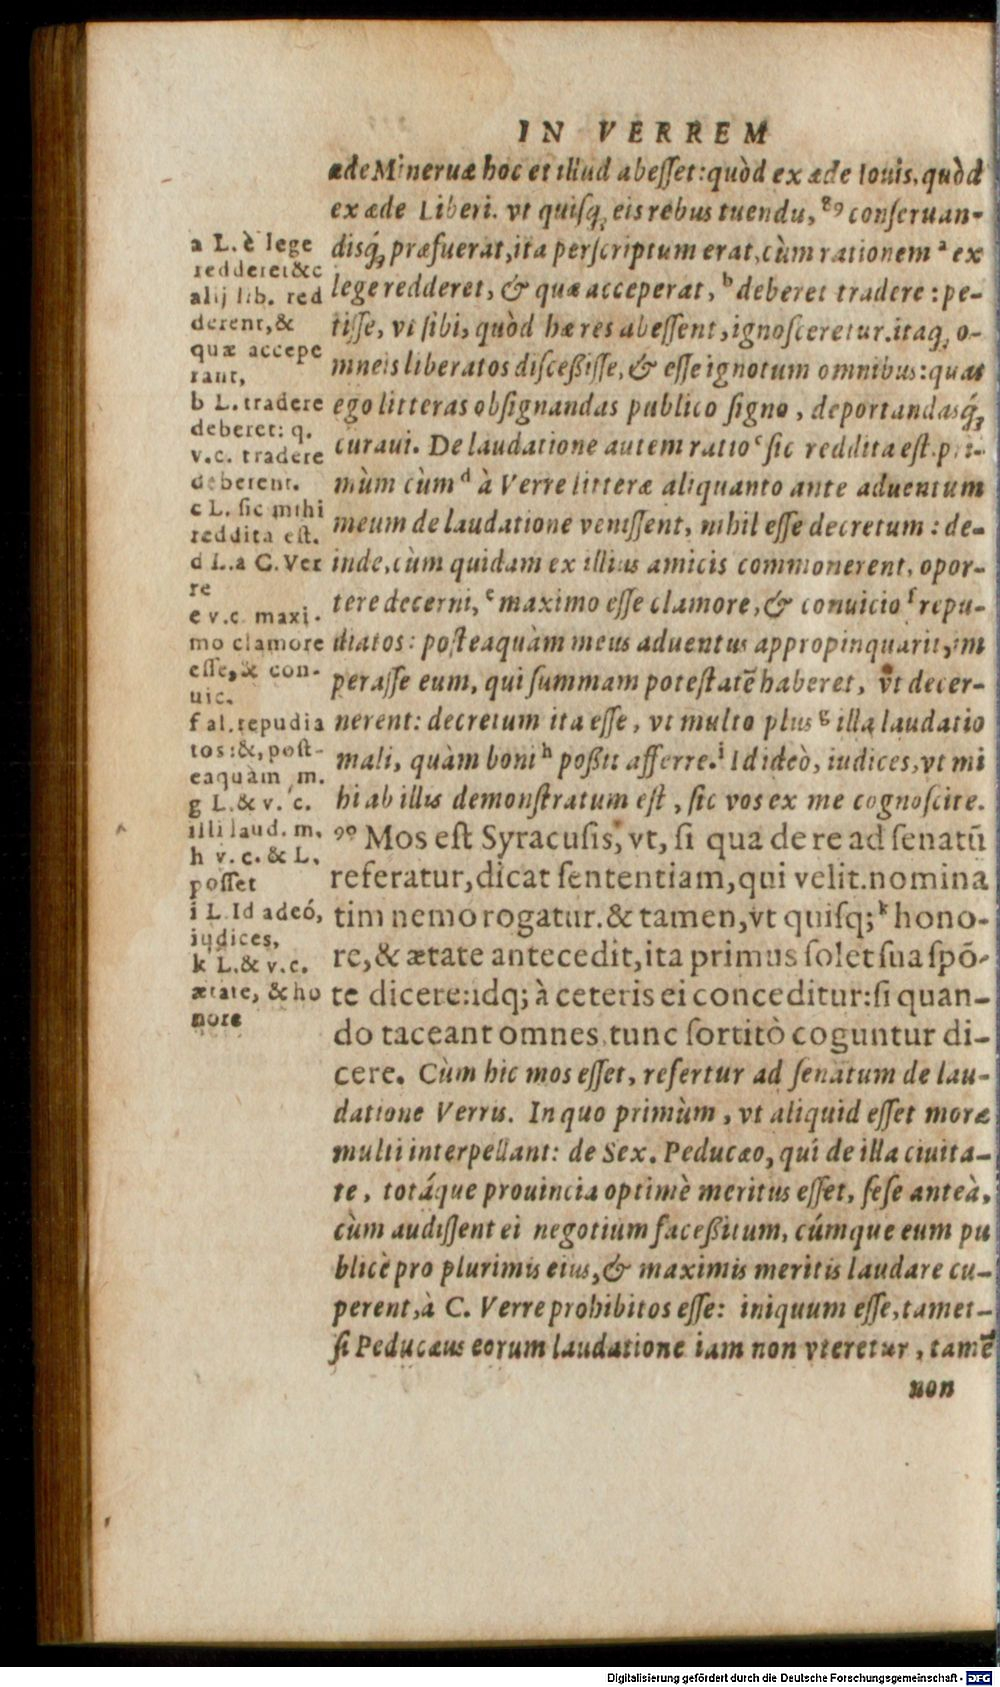 IN VERREM
æde Mineruæ hoc et illud abesset: quòd ex æde Iouis, quòd
ex æde Liberi. vt quisq́; eis rebus tuendu, 89 conseruan-
disq́; præfuerat, ita perscriptum erat, cùm rationem a ex
lege redderet, & quæ acceperat, b deberet tradere: pe-
tisse, vt sibi, quòd hæ res abessent, ignosceretur. itaq; o-
mneis liberatos discessisse, & esse ignotum omnibus: quas
ego litteras obsignandas publico signo, deportandasq́;
curaui. De laudatione autem ratio c sic reddita est. pri-
mùm cùm d à Verre litteræ aliquanto ante aduentum
meum de laudatione venissent, nihil esse decretum: de-
inde, cùm quidam ex illius amicis commonerent, opor-
tere decerni, e maximo esse clamore, & conuicio f repu-
diatos: posteaquàm meus aduentus appropinquarit, im
perasse eum, qui summam potestatē haberet, vt decer-
nerent: decretum ita esse, vt multo plus g illa laudatio
mali, quàm boni h possit afferre. i Id ideò, iudices, vt mi
hi ab illis demonstratum est, sic vos ex me cognoscite.
90 Mos est Syracusis, vt, si qua de re ad senatū
referatur, dicat sententiam, qui velit. nomina
tim nemo rogatur. & tamen, vt quisq; k hono-
re, & ætate antecedit, ita primus solet sua spō-
te dicere: idq; à ceteris ei conceditur: si quan-
do taceant omnes, tunc sortitò coguntur di-
cere. Cùm hic mos esset, refertur ad senatum de lau-
datione Verris. In quo primùm, vt aliquid esset moræ
multi interpellant: de Sex. Peducæo, qui de illa ciuita-
te, totáque prouincia optimè meritus esset, sese anteà,
cùm audissent ei negotium facessitum, cúmque eum pu
blicè pro plurimis eius, & maximis meritis laudare cu-
perent, à C. Verre prohibitos esse: iniquum esse, tamet-
si Peducæus eorum laudatione iam non vteretur, tamē
non
a L. è lege
redderet &c
alij lib. red
derent, &
quæ accepe
rant,
b L. tradere
deberet: q.
v.c. tradere
deberent.
c L. sic mihi
reddita est.
d L. a C. Ver
re
e v.c. maxi-
mo clamore
esse, & con-
uic.
f al. repudia
tos: &, post-
eaquàm m.
g L. & v. c.
illi laud. m.
h v. c. & L.
posset
i L. Id adeó,
iudices,
k L. & v.c.
ætate, & ho
nore
Digitalisierung gefördert durch die Deutsche Forschungsgemeinschaft - DFG